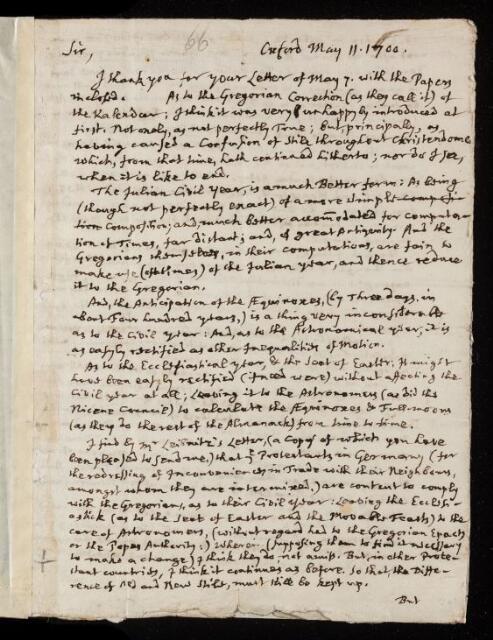 66
Sir, Oxford May 11. 1700.
I thank you for your Letter of May 7. with the Papers
inclosed. As to the Gregorian Correction (as they call it) of
the Kalendar; I think it was very unhappyly introduced at
first. Not onely, as not perfectly True; but, principaly, as
having caused a Confusion of Stile throughout Christendome
which, from that time, hath continued hitherto; nor do I see,
when it is like to end.
The Julian Civil year, is a much Better form: As being
(though not perfectly exact) of a more simple
Composition; and much better accommodated for computa-
tion of Times, far distant; and, of great Antiquity. And the
Gregorians themselves, in their computations, are fain to
make use (oft times) of the Julian year, and thence reduce
it to the Gregorian.
And, the Anticipation of the Æquinoxes, (by Three days, in
about Four hundred years,) is a thing very inconsiderable
as to the Civil year: And, as to the Astronomical year, it is
as easyly rectified as other Inequalities of Motion.
As to the Ecclesiastical year, & the Seat of Easter; It might
have been easyly rectified (if need were) without affecting the
Civil year at all; Leaving it to the Astronomers (as did the
Nicene Council) to calculate the Æquinoxes & Full-moons
(as they do the rest of the Almanack) from time to time.
I find by Mr Leibnitz's Letter, (a Copy of which you have
been pleased to send me,) that ye Protestants in Germany (for
the redressing of Inconveniences in Trade with their Neighbours,
amongst whom they are intermixed,) are content to comply
with the Gregorians, as to their Civil year: Leaving the Ecclesi-
astick (as to the Seat of Easter and the Movable Feasts) to the
care of Astronomers, (without regard had to the Gregorian Epacts
or the Popes Authority:) Wherein (supposing them to find it necessary
to make a change) I think they do not amiss. But, in other Prote-
stant countries, I think it continues as before. So that, the Diffe-
rence of Old and New Stile, must still be kept up.
But